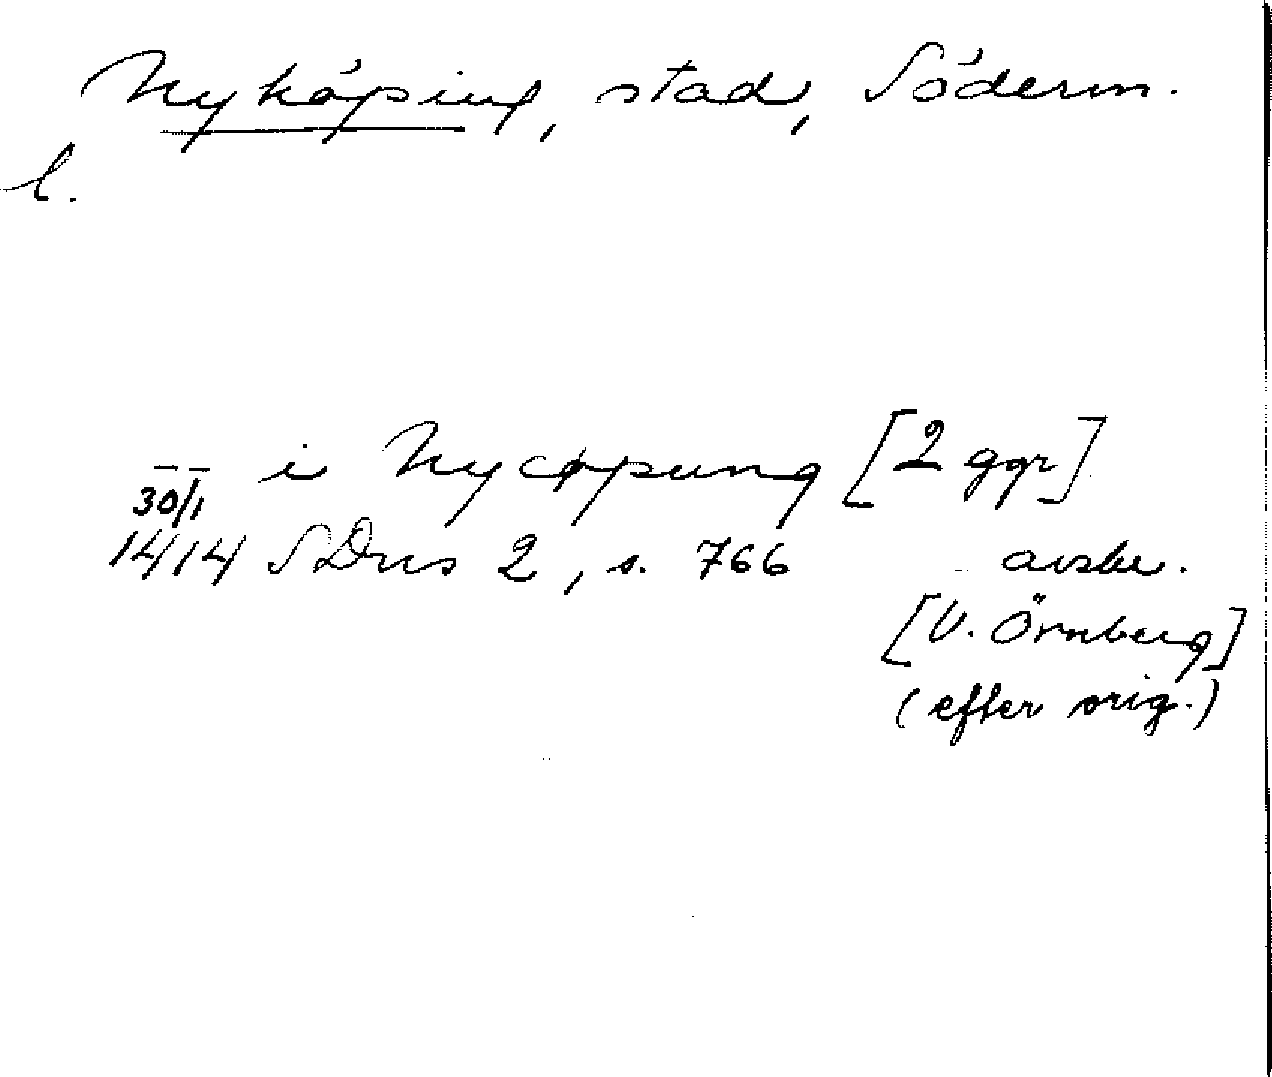 Nyköping, stad, Söderm.
l.
— — i Nycøpung [2 ggr]
30/1
1414 SDns 2, s. 766 avskr.
[V. Örnberg]
(efter orig.)